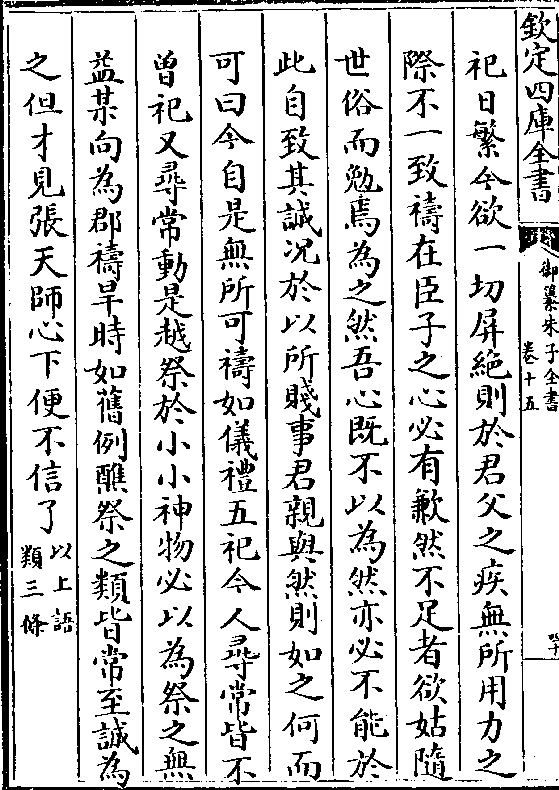 欽定四庫全書
御纂朱子全書
卷十五
祀日繁今欲一切屏絶則於君父之疾無所用力之
際不一致禱在臣子之心必有歉然不足者欲姑隨
世俗而勉焉為之然吾心既不以為然亦必不能於
此自致其誠况於以所賤事君親歟然則如之何而
可曰今自是無所可禱如儀禮五祀今人尋常皆不
曽祀又尋常動是越祭於小小神物必以為祭之無
益某向為郡禱旱時如舊例醮祭之類皆常至誠為
之但才見張天師心下便不信了以上語
類三條